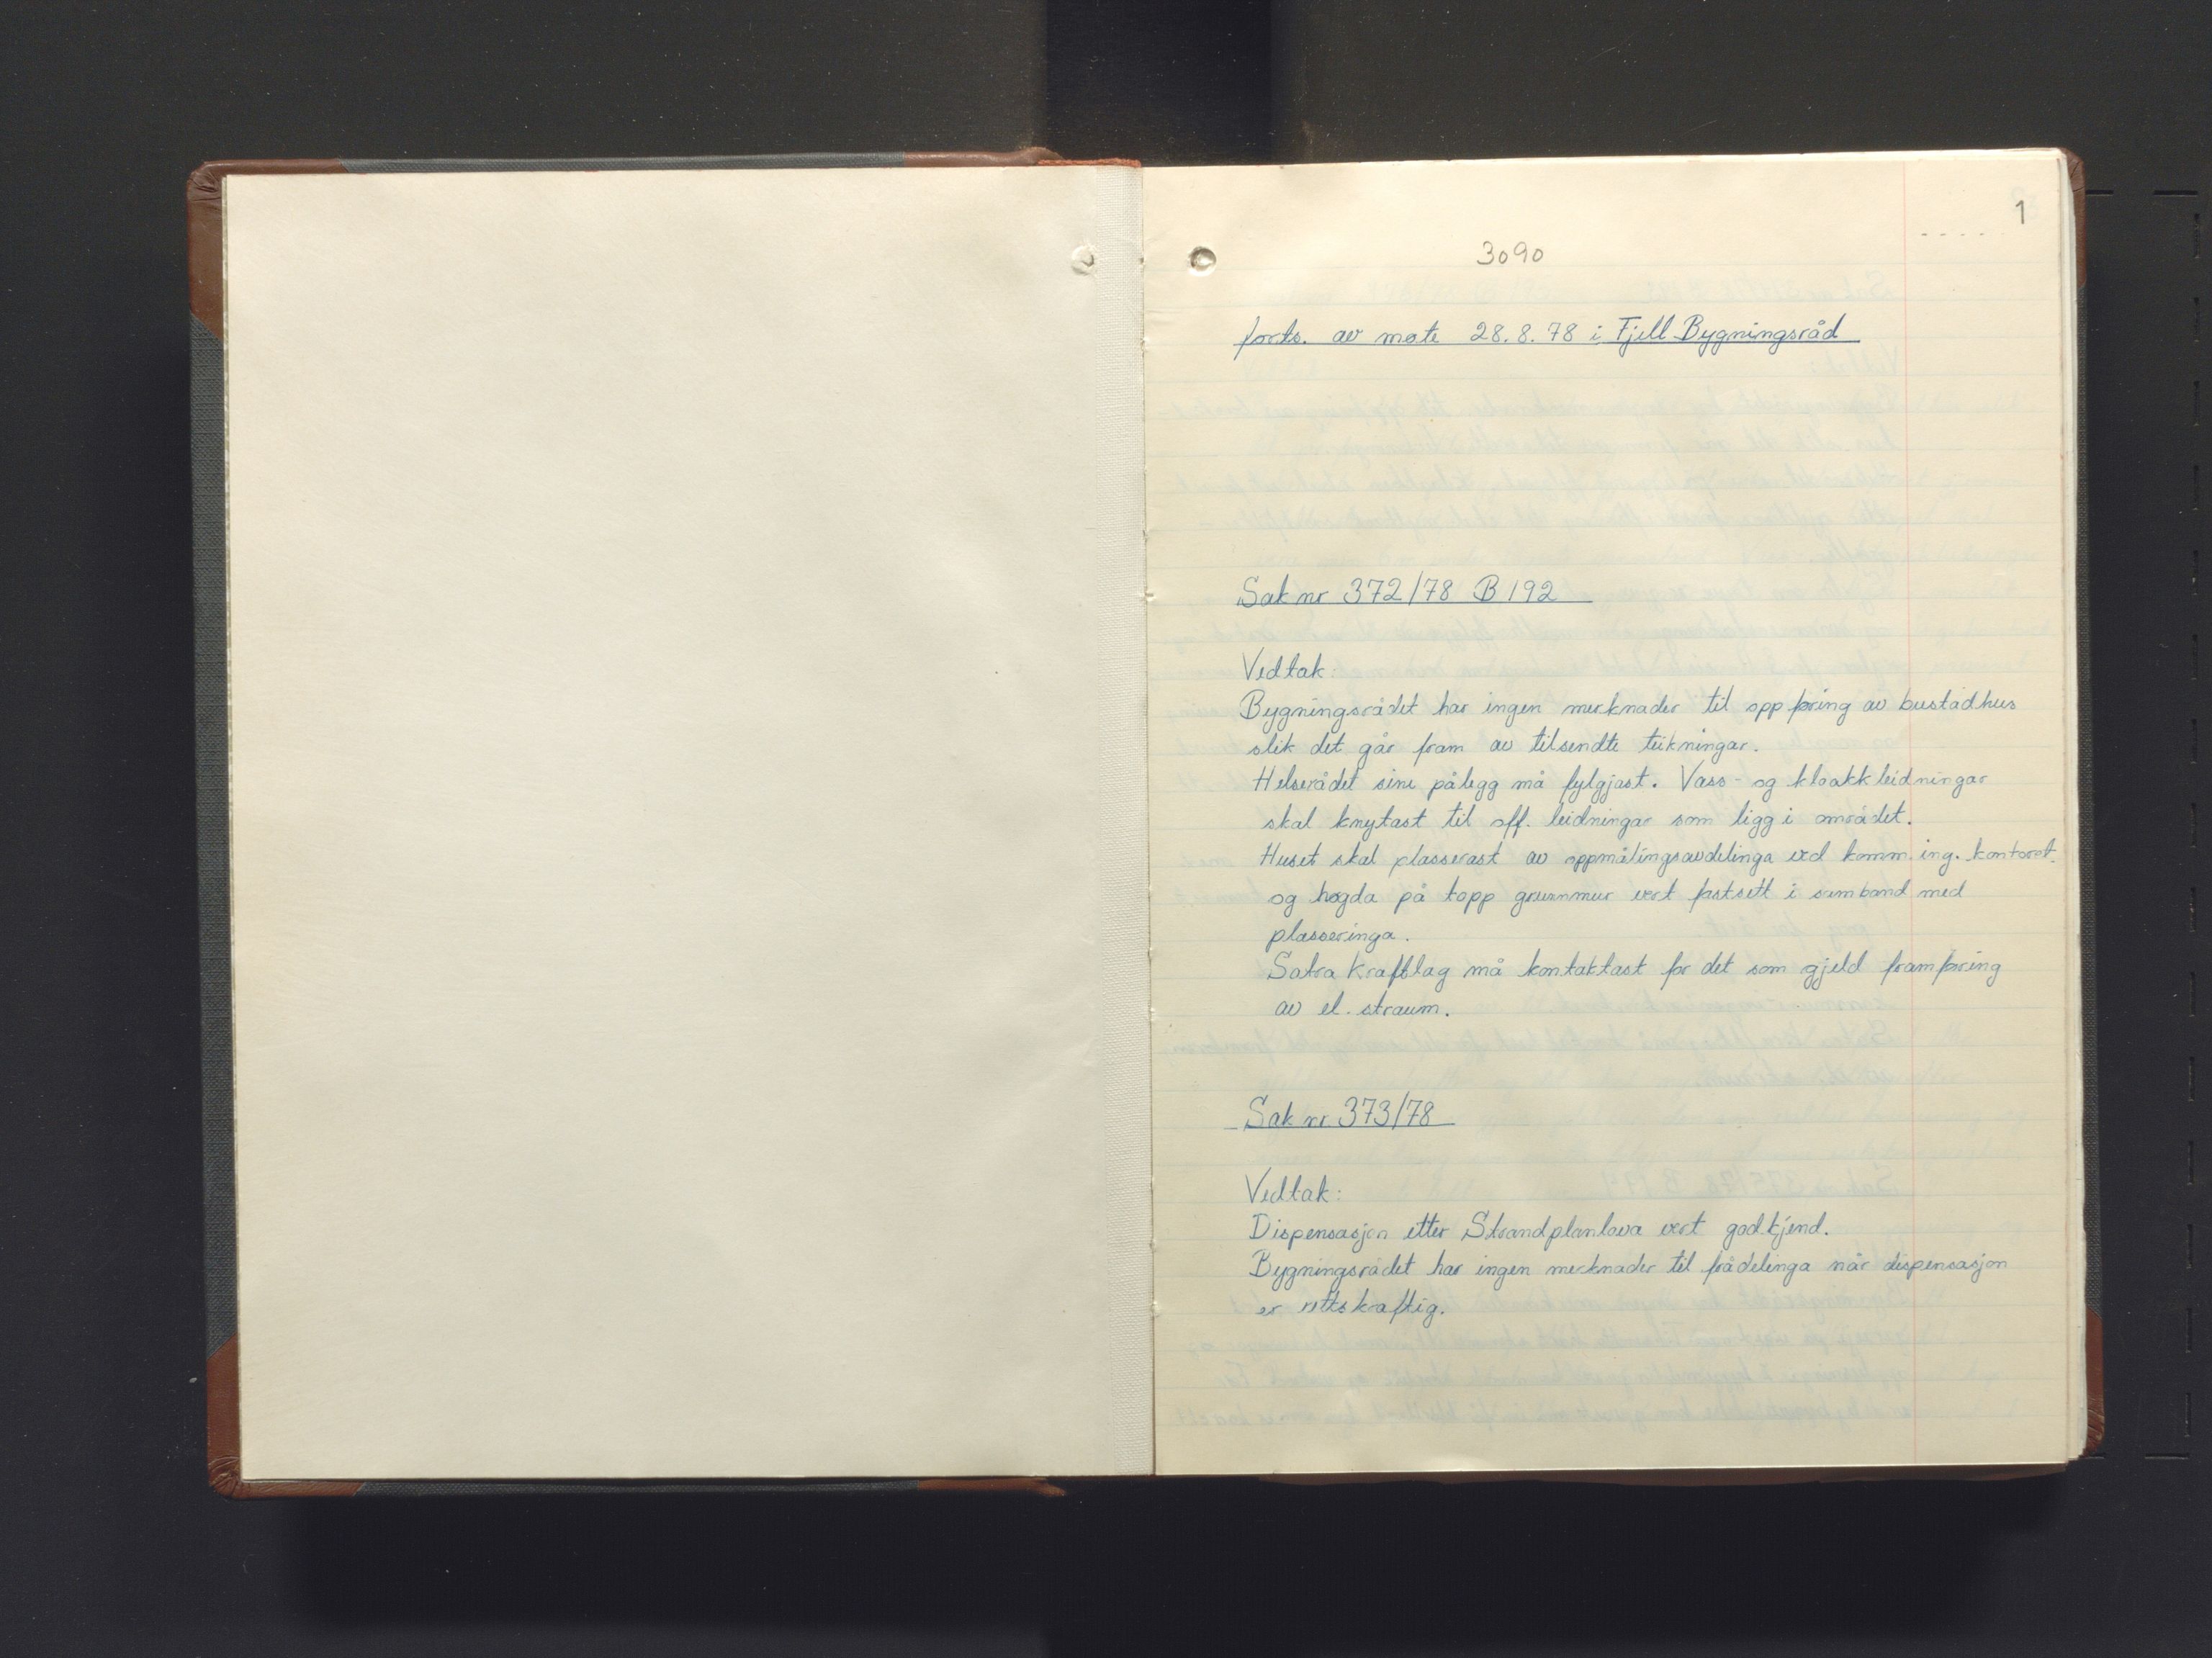 1
3090
forts. av møte 28.8.78 i Fjell Bygningsråd
Sak nr 372/78 B 192
Vedtak:
Bygningsrådet har ingen merknader til oppføring av bustadhus
slik det går fram av tilsendte teikningar.
Helserådet sine pålegg må fylgjast. Vass- og kloakkleidningar
skal knytast til off. leidningar som ligg i området.
Huset skal plasserast av oppmålingsavdelinga ved komm. ing. kontoret
og høgda på topp grunnmur vert fastsett i samband med
plasseringa.
Sotra Kraftlag må kontaktast for det som gjeld framføring
av el. straum.
Sak nr 373/78
Vedtak:
Dispensasjon etter Strandplanlova vert godkjend.
Bygningsrådet har ingen merknader til frådelinga når dispensasjon
er rettskraftig.